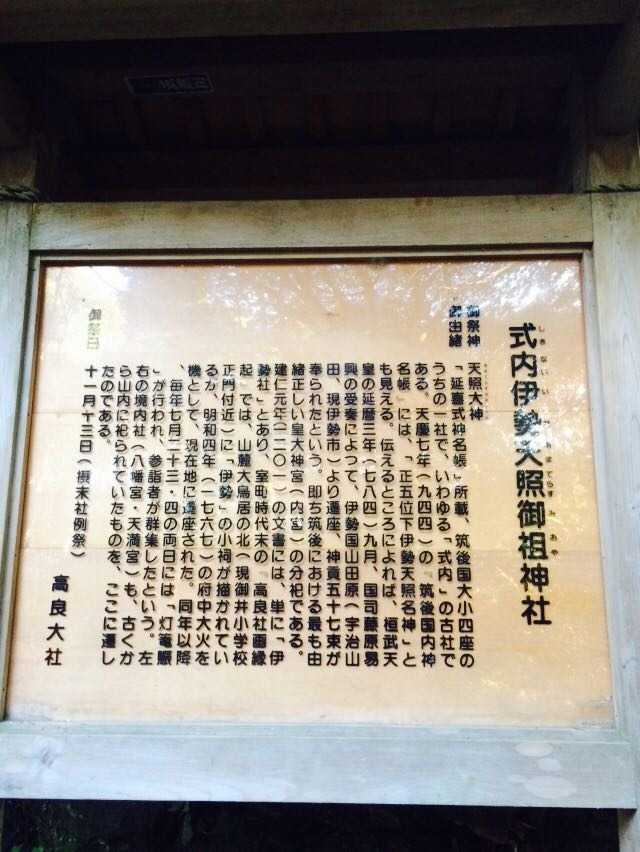 式内伊勢天照御祖神社
しきないいせあまてらすみおや
御祭神　天照大神
御由緒　「延喜式神名帳」所載、筑後国大小四座の
うちの一社で、いわゆる「式内」の古社で
ある。天慶七年(九四四)の『筑後国内神
名帳』には、「正五位下伊勢天照名神」と
も見える。伝えるところによれば、桓武天
皇の延暦三年(七八四)九月、国司藤原易
興の受奏によって、伊勢国山田原(宇治山
田、現伊勢市)より遷座、神貢五十七束が
奉られたという。即ち筑後における最も由
緒正しい皇大神宮(内宮)の分祀である。
建仁元年(一二〇一)の文書には、単に「伊
勢社」とあり、室町時代末の、高良社画縁
起』では、山麓大鳥居の北(現御井小学校
正門付近)に「伊勢」の小祠が描かれてい
るが、明和四年(一七六七)の府中大火を
機として、現在地に遷座された。同年以降
、毎年七月二十三・四の両日には「灯篭賑
」が行われ、参詣者が群集したという。左
右の境内社(八幡宮・天満宮)も、古くか
ら山内に祀られていたものを、ここに遷し
たのである。
御祭日　十一月十三日(摂末社例祭)
高良大社